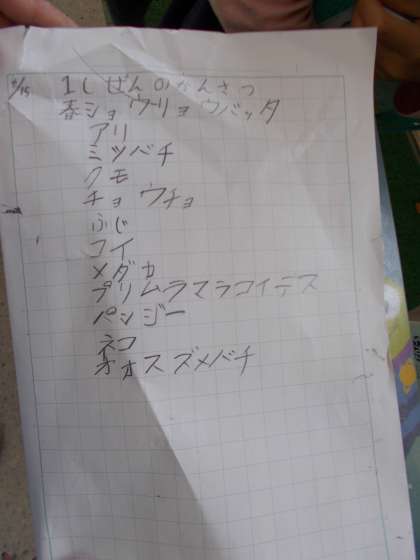 1しぜんのかんさつ
春ショウリョウバッタ
アリ
ミツバチ
クモ
チョウチョ
ふじ
コイ
メダカ
プリムラマラコイデス
パンジー
ネコ
オオスズメバチ